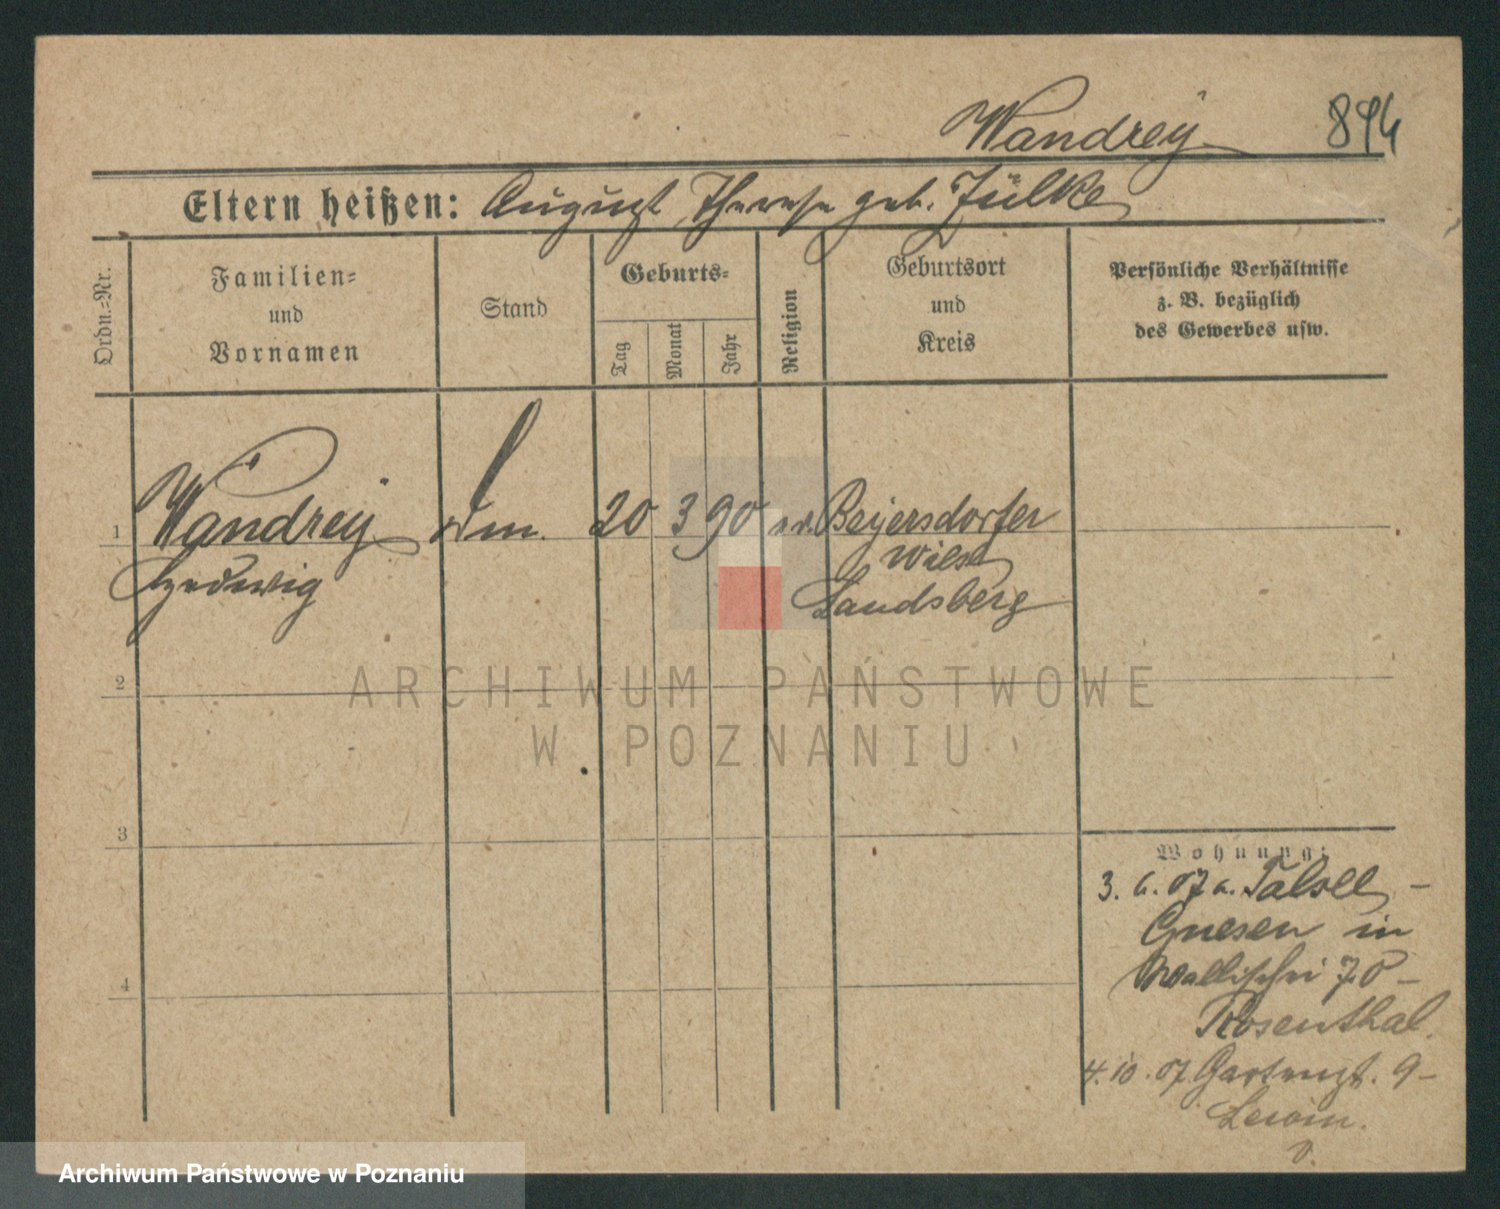 Wandrey 894
Eltern heißen: August Therese geb. Zülke
Ordn.-Nr.
Familien-
und
Vornamen
Stand
Geburts-
Tag
Monat
Jahr
Religion
Geburtsort
und
Kreis
Persönliche Verhältnisse
z. B. bezüglich
des Gewerbes usw.
1 Wandrey 20 3 90 Beyersdorfer
Hedwig wiese
Landsberg
ARCHIWUM PAŃSTWOWE
W POZNANIU
2
3
4
Wohnung:
3. 6. 07 a.
Gnesen in
Wallischei 70 –
Rosenthal.
4. 10. 07 Gartenst. 9 –
Lewin.
Archiwum Państwowe w Poznaniu